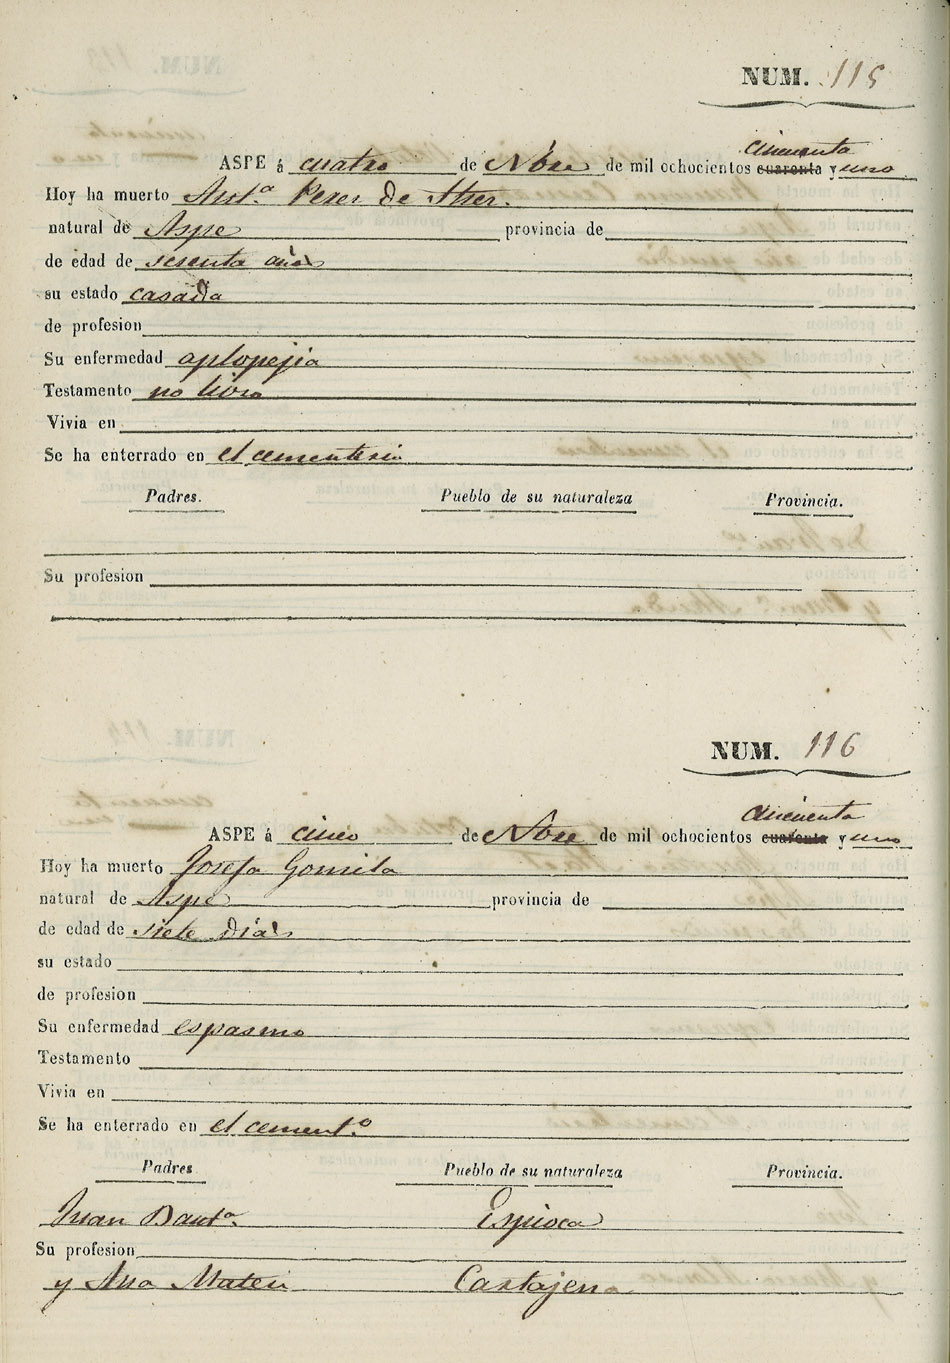 NUM. 115
cincuenta
ASPE á cuatro de Nbre de mil ochocientos cuarenta y uno
Hoy ha muerto Ant.ª Perez de Ster.
natural de Aspe provincia de
de edad de sesenta años
su estado casada
de profesion
Su enfermedad aplopejia
Testamento no hizo
Vivia en
Se ha enterrado en el cementerio
Padres. Pueblo de su naturaleza Provincia.
Su profesion
NUM. 116
cincuenta
ASPE á cinco de Nbre de mil ochocientos cuarenta y uno
Hoy ha muerto Josefa Gomila
natural de Aspe provincia de
de edad de siete dias
su estado
de profesion
Su enfermedad espasmo
Testamento
Vivia en
Se ha enterrado en el cement.º
Padres Pueblo de su naturaleza Provincia.
Juan Baut.ª Espioca
Su profesion
y Ana Mateu Cartajena